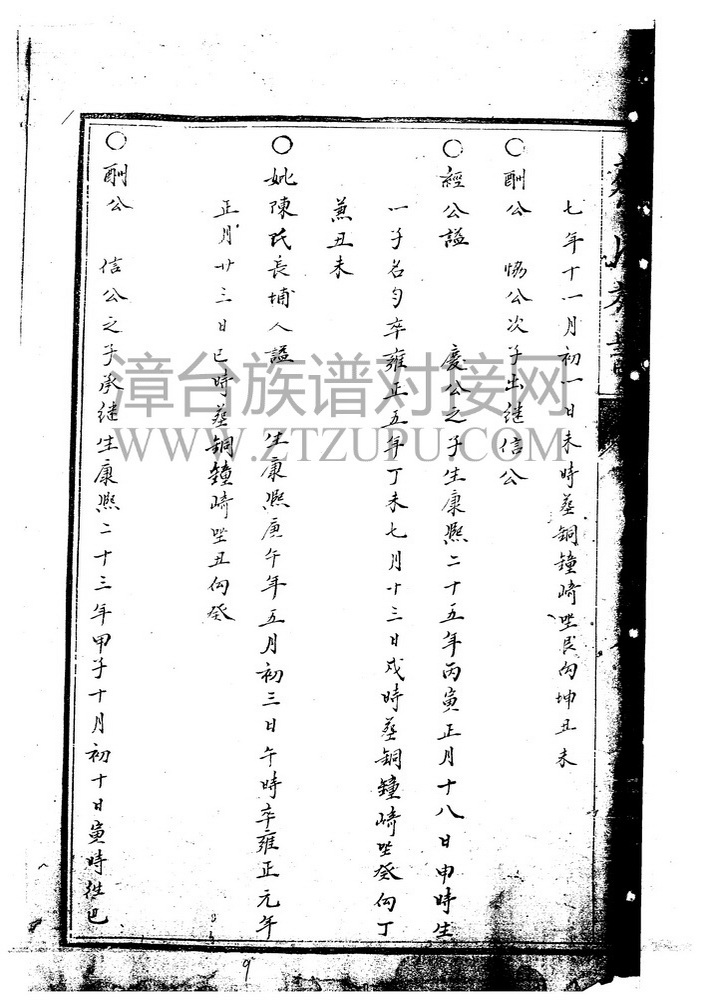 七年十一月初一日未時葬銅鐘崎坐艮向坤丑未
○酬公 悋公次子出继信公
○經公謚 慶公之子生康熙二十五年丙寅正月十八日申時生
一子名勻卒雍正五年丁未七月廿三日戌時葬銅鐘崎坐癸向丁
兼丑未
○妣陳氏長埔人謚 生康熙庚午年五月初三日午時卒雍正元年
正月廿三日巳時葬銅鐘崎坐丑向癸
○酬公 信公之子承继生康熙二十三年甲子十月初十日寅時往巴
9
漳台族谱对接网
WWW.ZTZUPU.COM